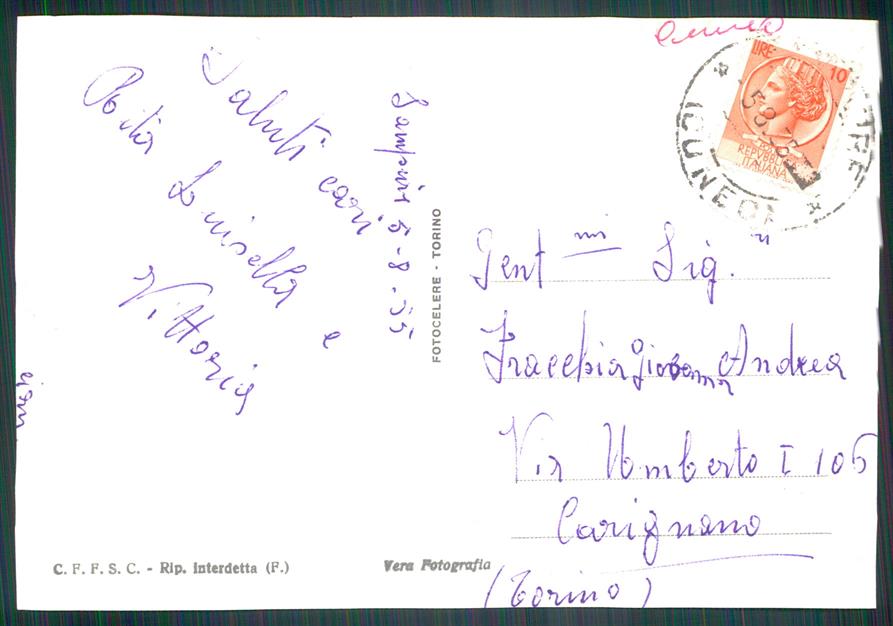 Saluti cari
Rita
Luisella e
Vittoria
5-8-55
FOTOCELERE - TORINO
C. F. F. S. C. - Rip. Interdetta (F.)
Vera Fotografia
Cuneo
LIRE 10
REPVBBLICA
ITALIANA
(CUNEO)
Gent mi Sig. ri
Fracchia Giovanna Andrea
Via Umberto I 106
Carignano
(Torino)